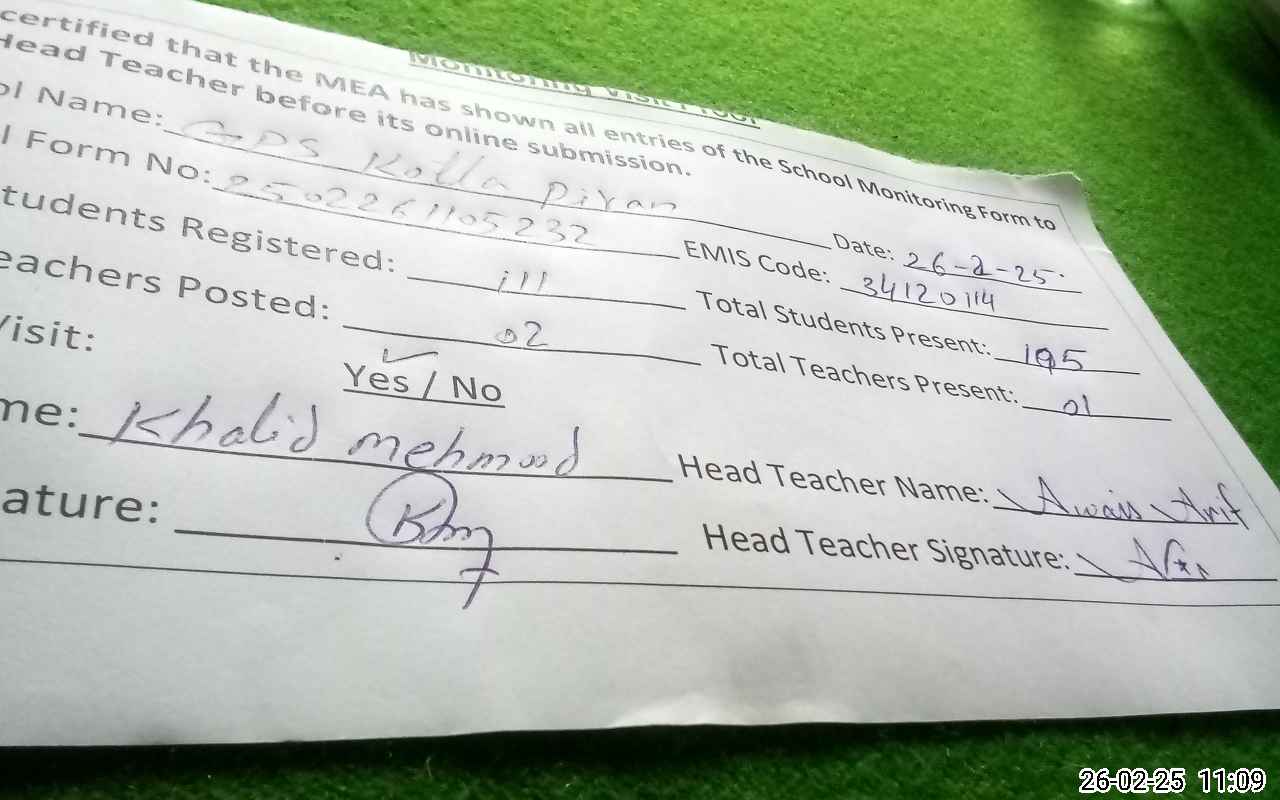 Monitoring Visit Proof
certified that the MEA has shown all entries of the School Monitoring Form to
Head Teacher before its online submission.
ol Name: GPS Kotla Piran Date: 26-2-25
l Form No: 2502261105232 EMIS Code: 34120114
tudents Registered: 111 Total Students Present: 105
eachers Posted: 02 Total Teachers Present: 01
Visit: Yes / No
me: Khalid mehmood Head Teacher Name: Awais Arif
ature: Head Teacher Signature:
26-02-25 11:09